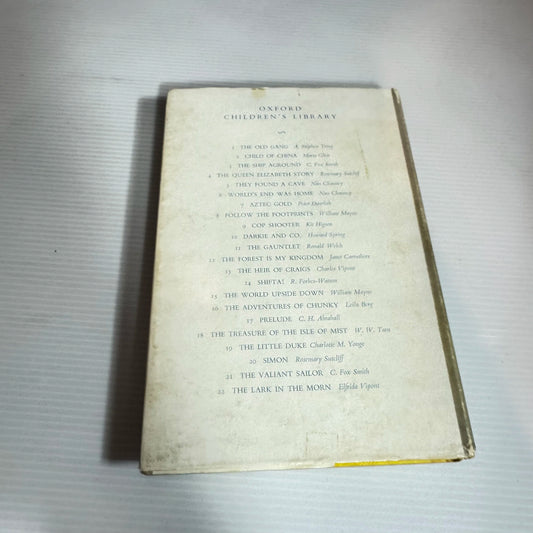 OXFORD
CHILDREN'S LIBRARY
1 THE OLD GANG A. Stephen Tring
2 CHILD OF CHINA
3 THE SHIP AGROUND C. Fox Smith
4 THE QUEEN ELIZABETH STORY Rosemary Sutcliff
5 THEY FOUND A CAVE Nan Chauncy
6 WORLD'S END WAS HOME Nan Chauncy
7 AZTEC GOLD Peter Dawlish
8 FOLLOW THE FOOTPRINTS William Mayne
9 COP SHOOTER Kit Higson
10 DARKIE AND CO. Howard Spring
11 THE GAUNTLET Ronald Welch
12 THE FOREST IS MY KINGDOM Janet Carruthers
13 THE HEIR OF CRAIGS Charles Vipont
14 SHIFTA! R. Forbes-Watson
15 THE WORLD UPSIDE DOWN William Mayne
16 THE ADVENTURES OF CHUNKY Leila Berg
17 PRELUDE C. H. Abrahall
18 THE TREASURE OF THE ISLE OF MIST W. W. Tarn
19 THE LITTLE DUKE Charlotte M. Yonge
20 SIMON Rosemary Sutcliff
21 THE VALIANT SAILOR C. Fox Smith
22 THE LARK IN THE MORN Elfrida Vipont